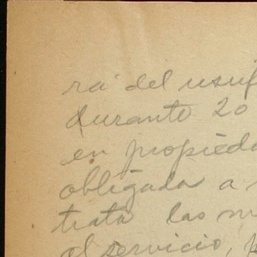 ra del usuf
durante 20
en propieda
obligada a
trata las m
al servicio, p